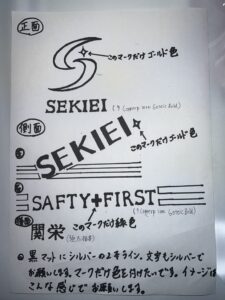 正面
このマークだけゴールド色
SEKIEI
側面
SEKIEI
このマークだけゴールド色
SAFTY+FIRST
このマークだけ緑色
関栄
黒マットにシルバーの2本ライン。文字もシルバーで
お願いします。マークだけ色を付けたいです。イメージは
こんな感じでお願いします。